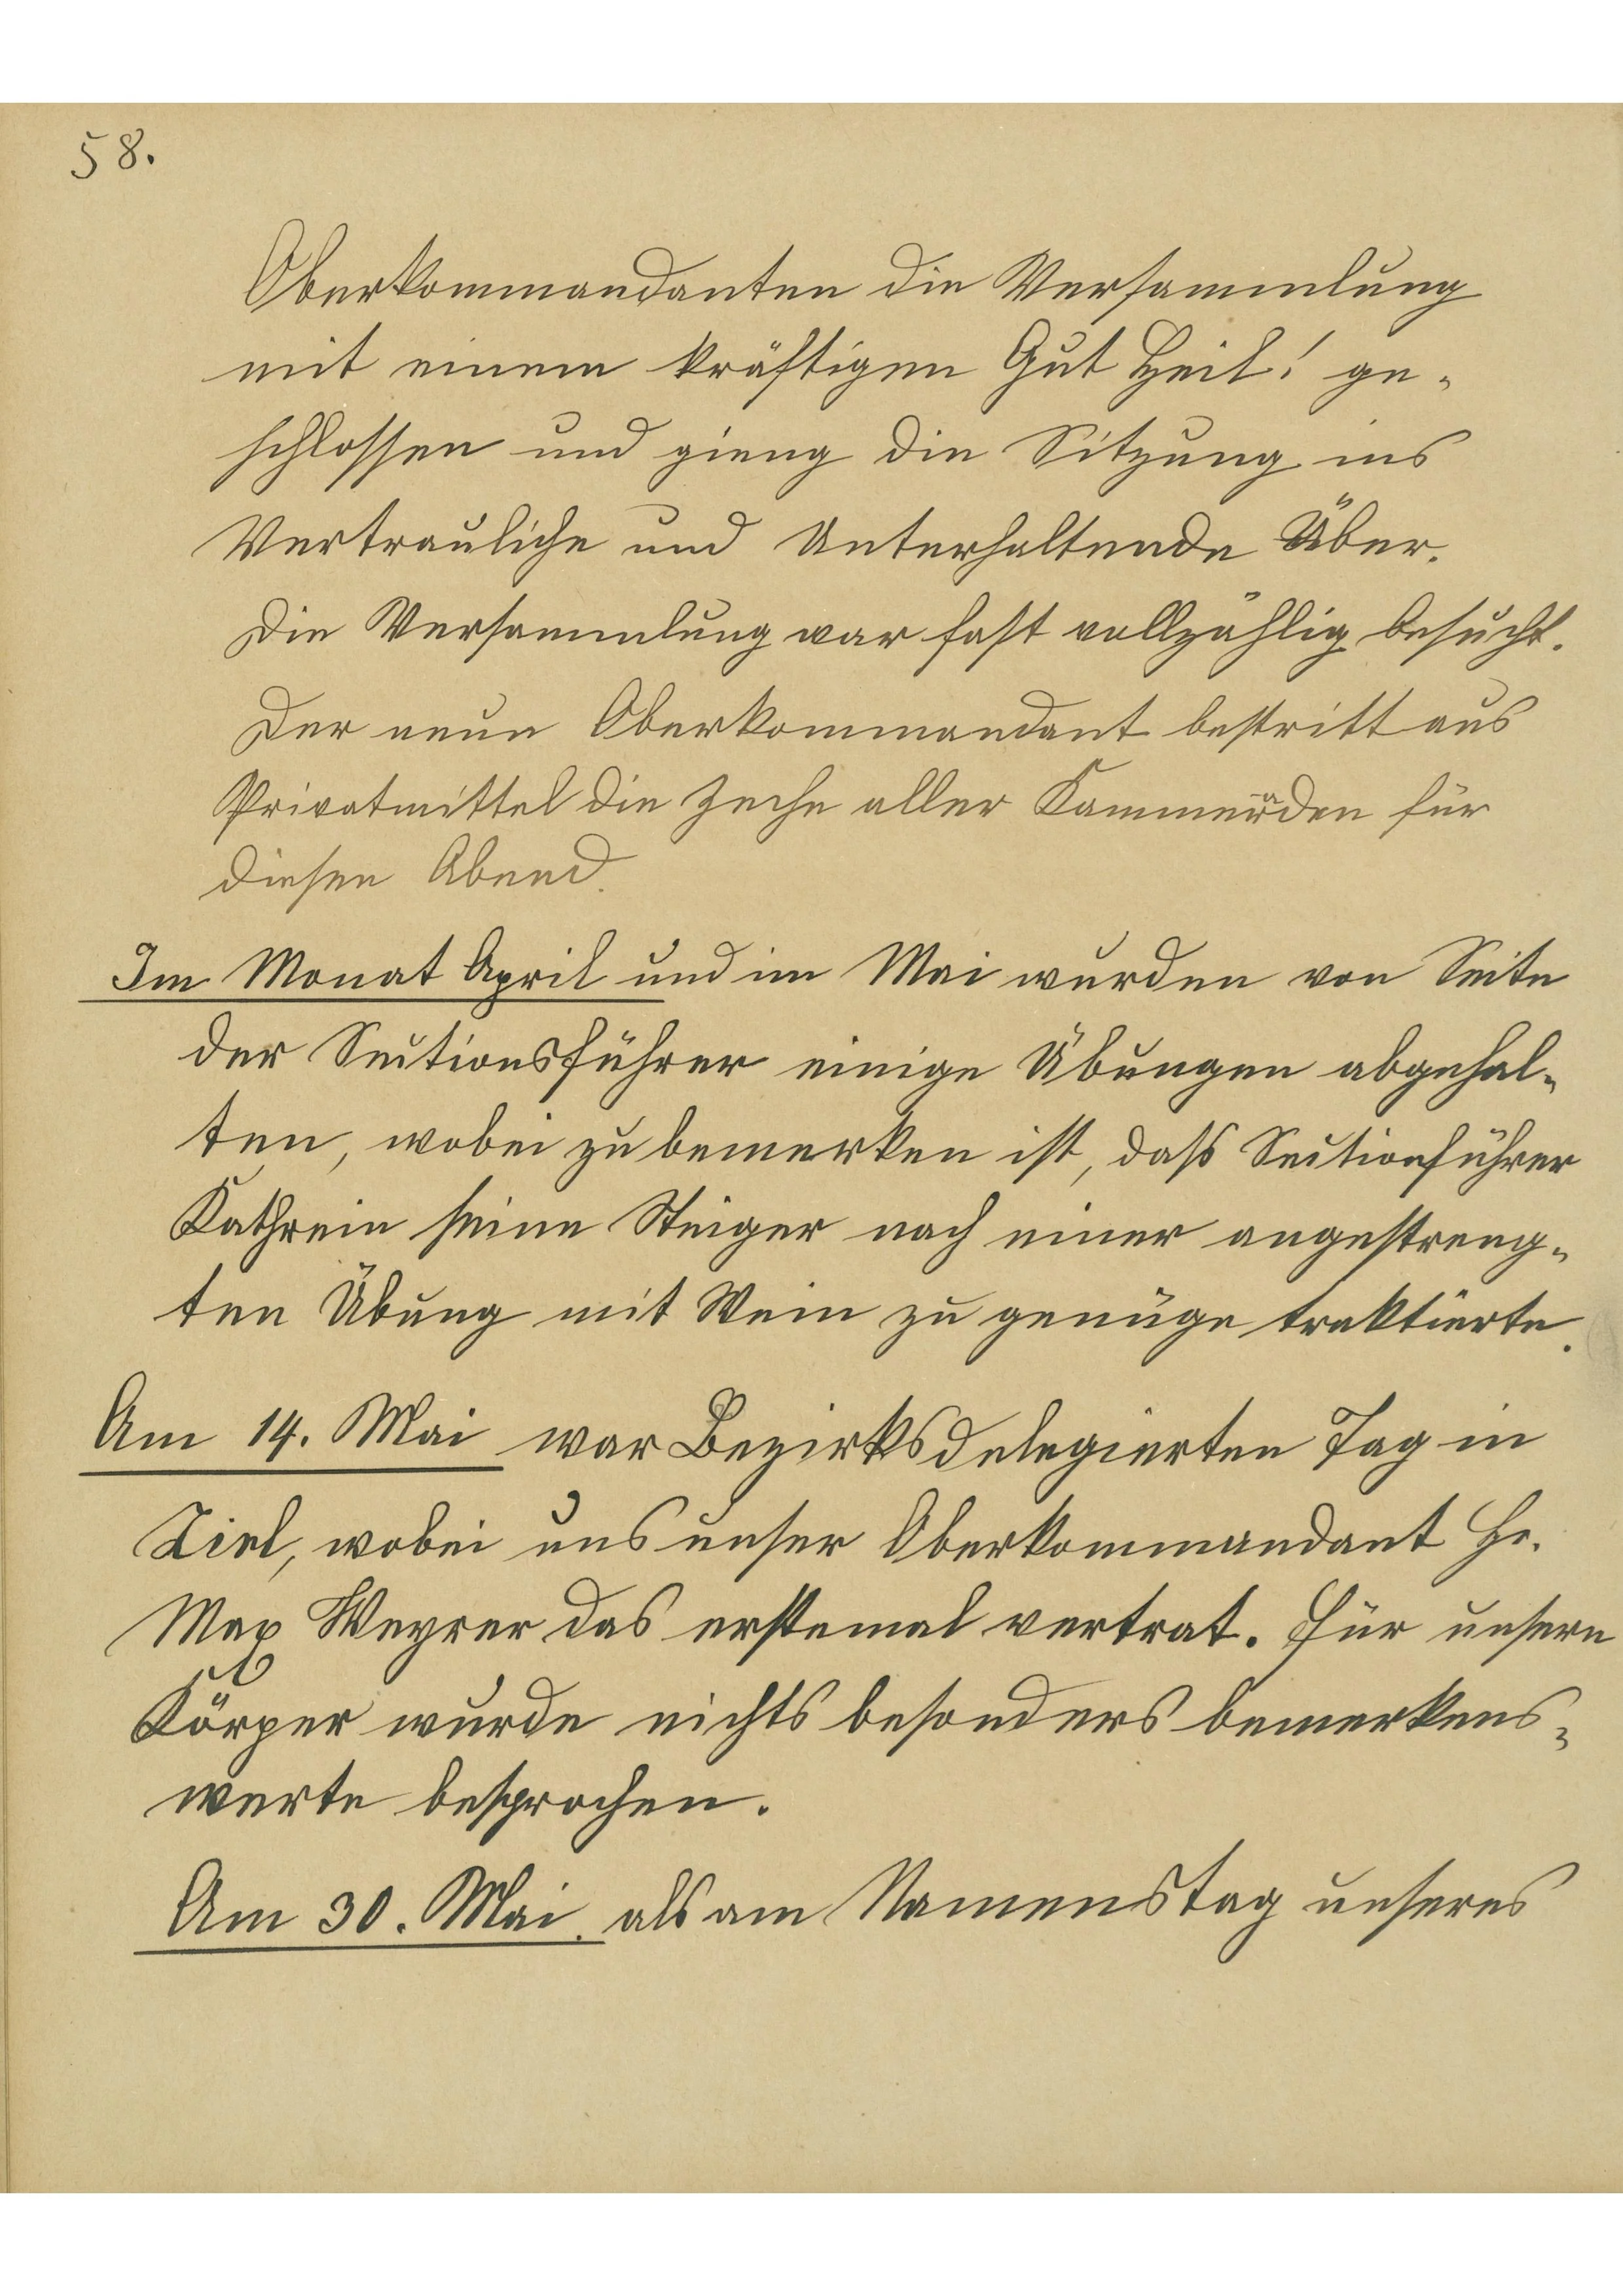 58.
Oberkommandanten die Versammlung
mit einem kräftigen Gut Heil! ge-
schlossen und gieng die Sitzung ins
Vertrauliche und Unterhaltende Über.
Die Versammlung war fast vollzählig besucht.
Der neue Oberkommandant bestritt aus
Privatmittel die Zeche aller Kammeraden für
diesen Abend.
Im Monat April und im Mai wurden von Seite
der Sectionsführer einige Übungen abgehal-
ten, wobei zu bemerken ist, daß Sectionsführer
Kathrein seine Steiger nach einer angestreng-
ten Übung mit Wein zu genüge traktierte.
Am 14. Mai war Bezirksdelegierten Tag in
Zirl, wobei uns unser Oberkommandant Hr.
Max Weyrer das erstemal vertrat. Für unsern
Körper wurde nichts besonders bemerkens-
werte besprochen.
Am 30. Mai. als am Namenstag unseres